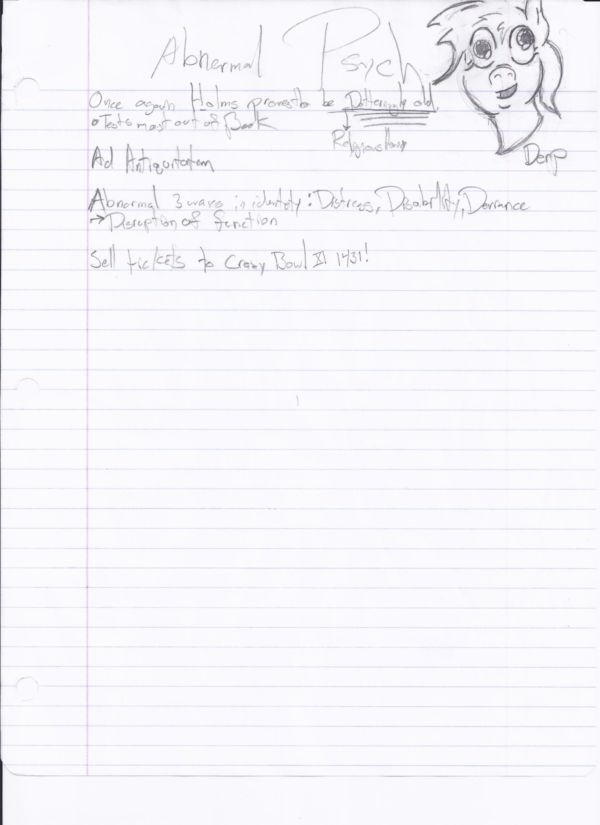 Abnormal Psych
Once again Holms promes to be Dotteringly old
• Tests most out of Book
Derp
Ad Antiquitatem
Abnormal 3 ways in identity: Distress, Disability, Deviance
→ Disruption of function
Sell tickets to Crazy Bowl XI 1431!